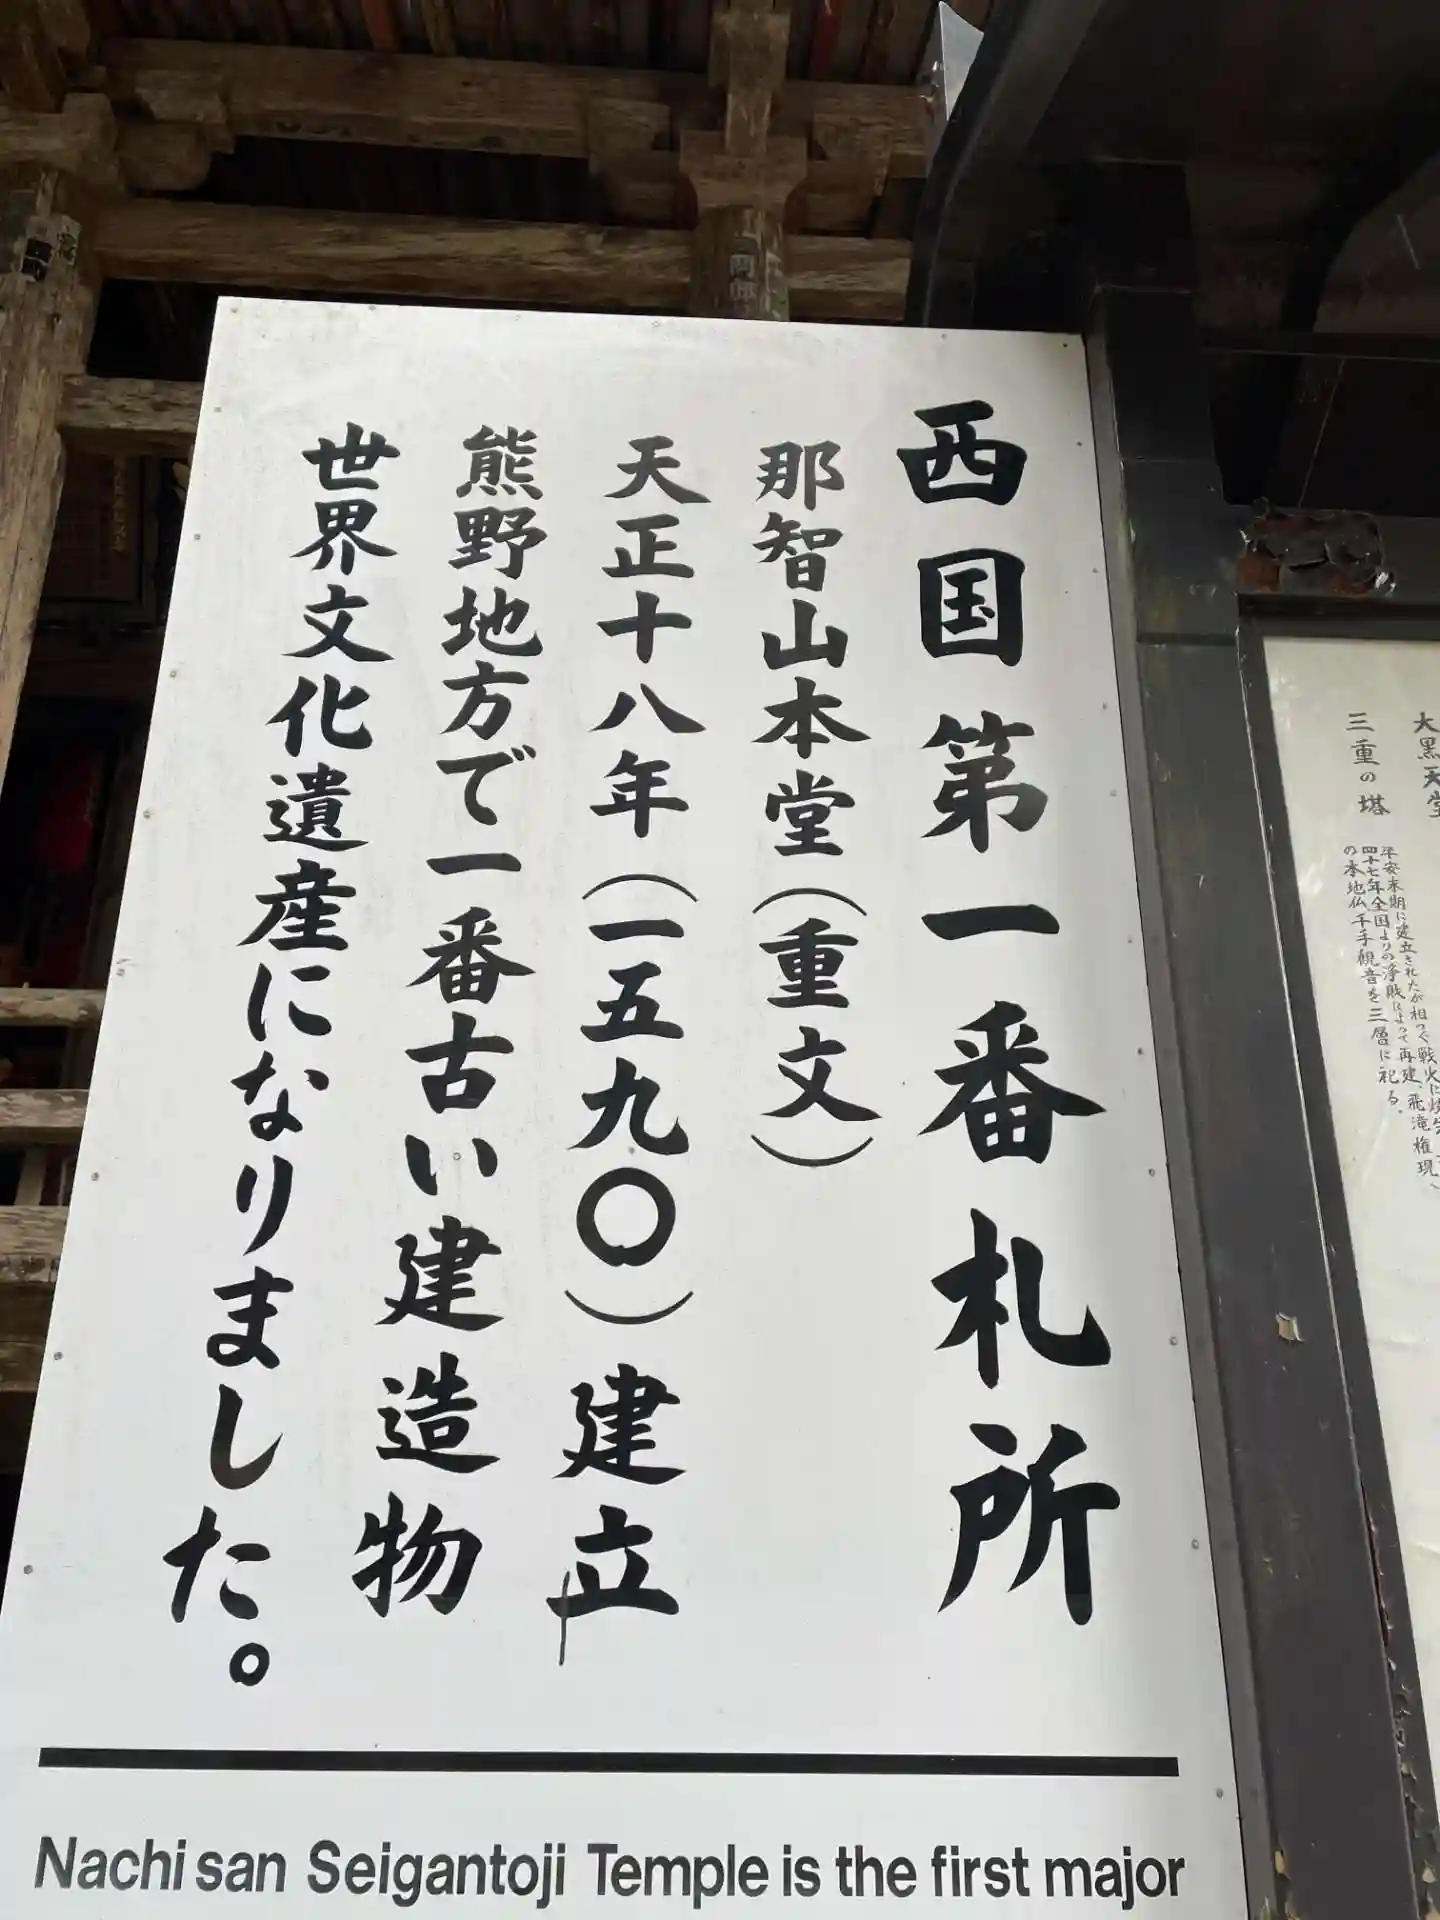 西国第一番札所
那智山本堂(重文)
天正十八年(一五九〇)建立
熊野地方で一番古い建造物
世界文化遺産になりました。
Nachi san Seigantoji Temple is the first major
大黒天堂
三重の塔
平安末期に建立されたが相つぐ戦火に
四十七年全国よりの浄財によって再建、飛滝権現
の本地仏千手観音を三層に祀る。